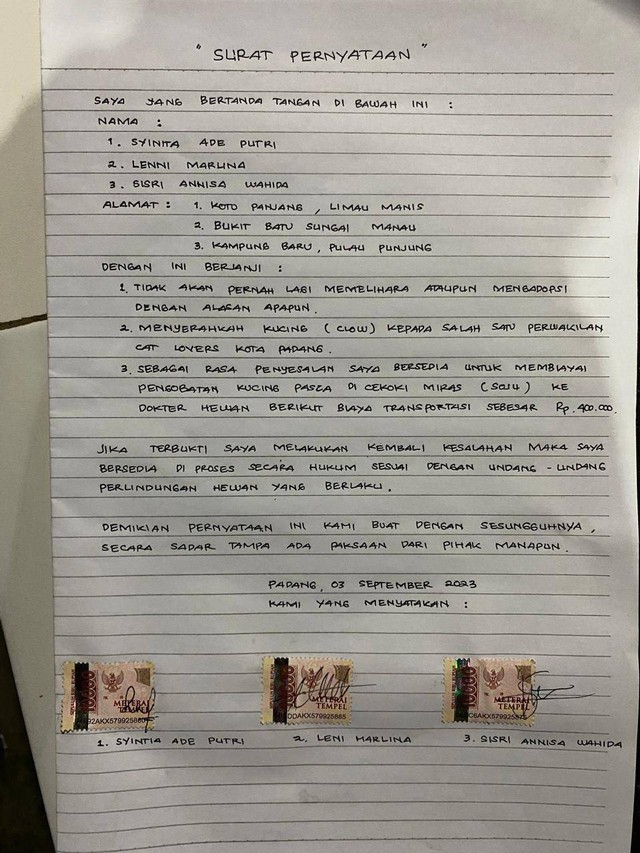 " SURAT PERNYATAAN "
SAYA YANG BERTANDA TANGAN DI BAWAH INI :
NAMA :
1. SYINITA ADE PUTRI
2. LENNI MARLINA
3. SISRI ANNISA WAHIDA
ALAMAT : 1. KOTO PANJANG , LIMAU MANIS
2. BUKIT BATU SUNGAI MANAU
3. KAMPUNG BARU , PULAU PUNJUNG
DENGAN INI BERJANJI :
1. TIDAK AKAN PERNAH LAGI MEMELIHARA ATAUPUN MENGADOPSI
DENGAN ALASAN APAPUN.
2. MENYERAHKAH KUCING ( CLOW ) KEPADA SALAH SATU PERWAKILAN
CAT LOVERS KOTA PADANG .
3. SEBAGAI RASA PENYESALAN SAYA BERSEDIA UNTUK MEMBIAYAI
PENGOBATAN KUCING PASCA DI CEKOKI MIRAS ( SOJU ) KE
DOKTER HEWAN BERIKUT BIAYA TRANSPORTASI SEBESAR Rp. 400.000.
JIKA TERBUKTI SAYA MELAKUKAN KEMBALI KESALAHAN MAKA SAYA
BERSEDIA DI PROSES SECARA HUKUM SESUAI DENGAN UNDANG - UNDANG
PERLINDUNGAN HEWAN YANG BERLAKU .
DEMIKIAN PERNYATAAN INI KAMI BUAT DENGAN SESUNGGUHNYA ,
SECARA SADAR TAMPA ADA PAKSAAN DARI PIHAK MANAPUN .
PADANG, 03 SEPTEMBER 2023
KAMI YANG MENYATAKAN :
10000 METERAI TEMPEL
10000 METERAI TEMPEL DDAKX579925885
10000 METERAI TEMPEL
1. SYINTIA ADE PUTRI 2. LENI MARLINA 3. SISRI ANNISA WAHIDA